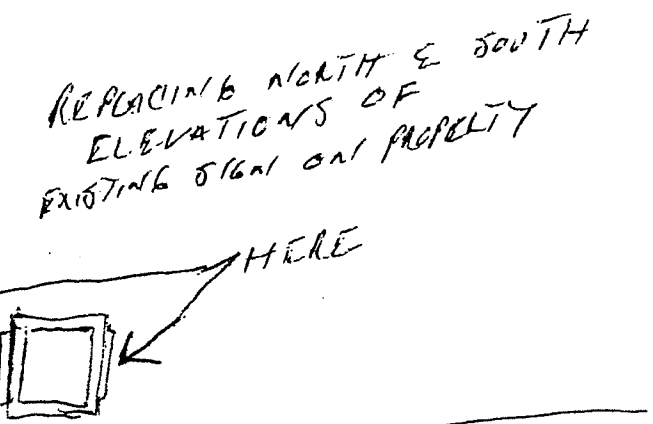 REPLACING NORTH & SOUTH
ELEVATIONS OF
EXISTING SIGN ON PROPERTY
HERE